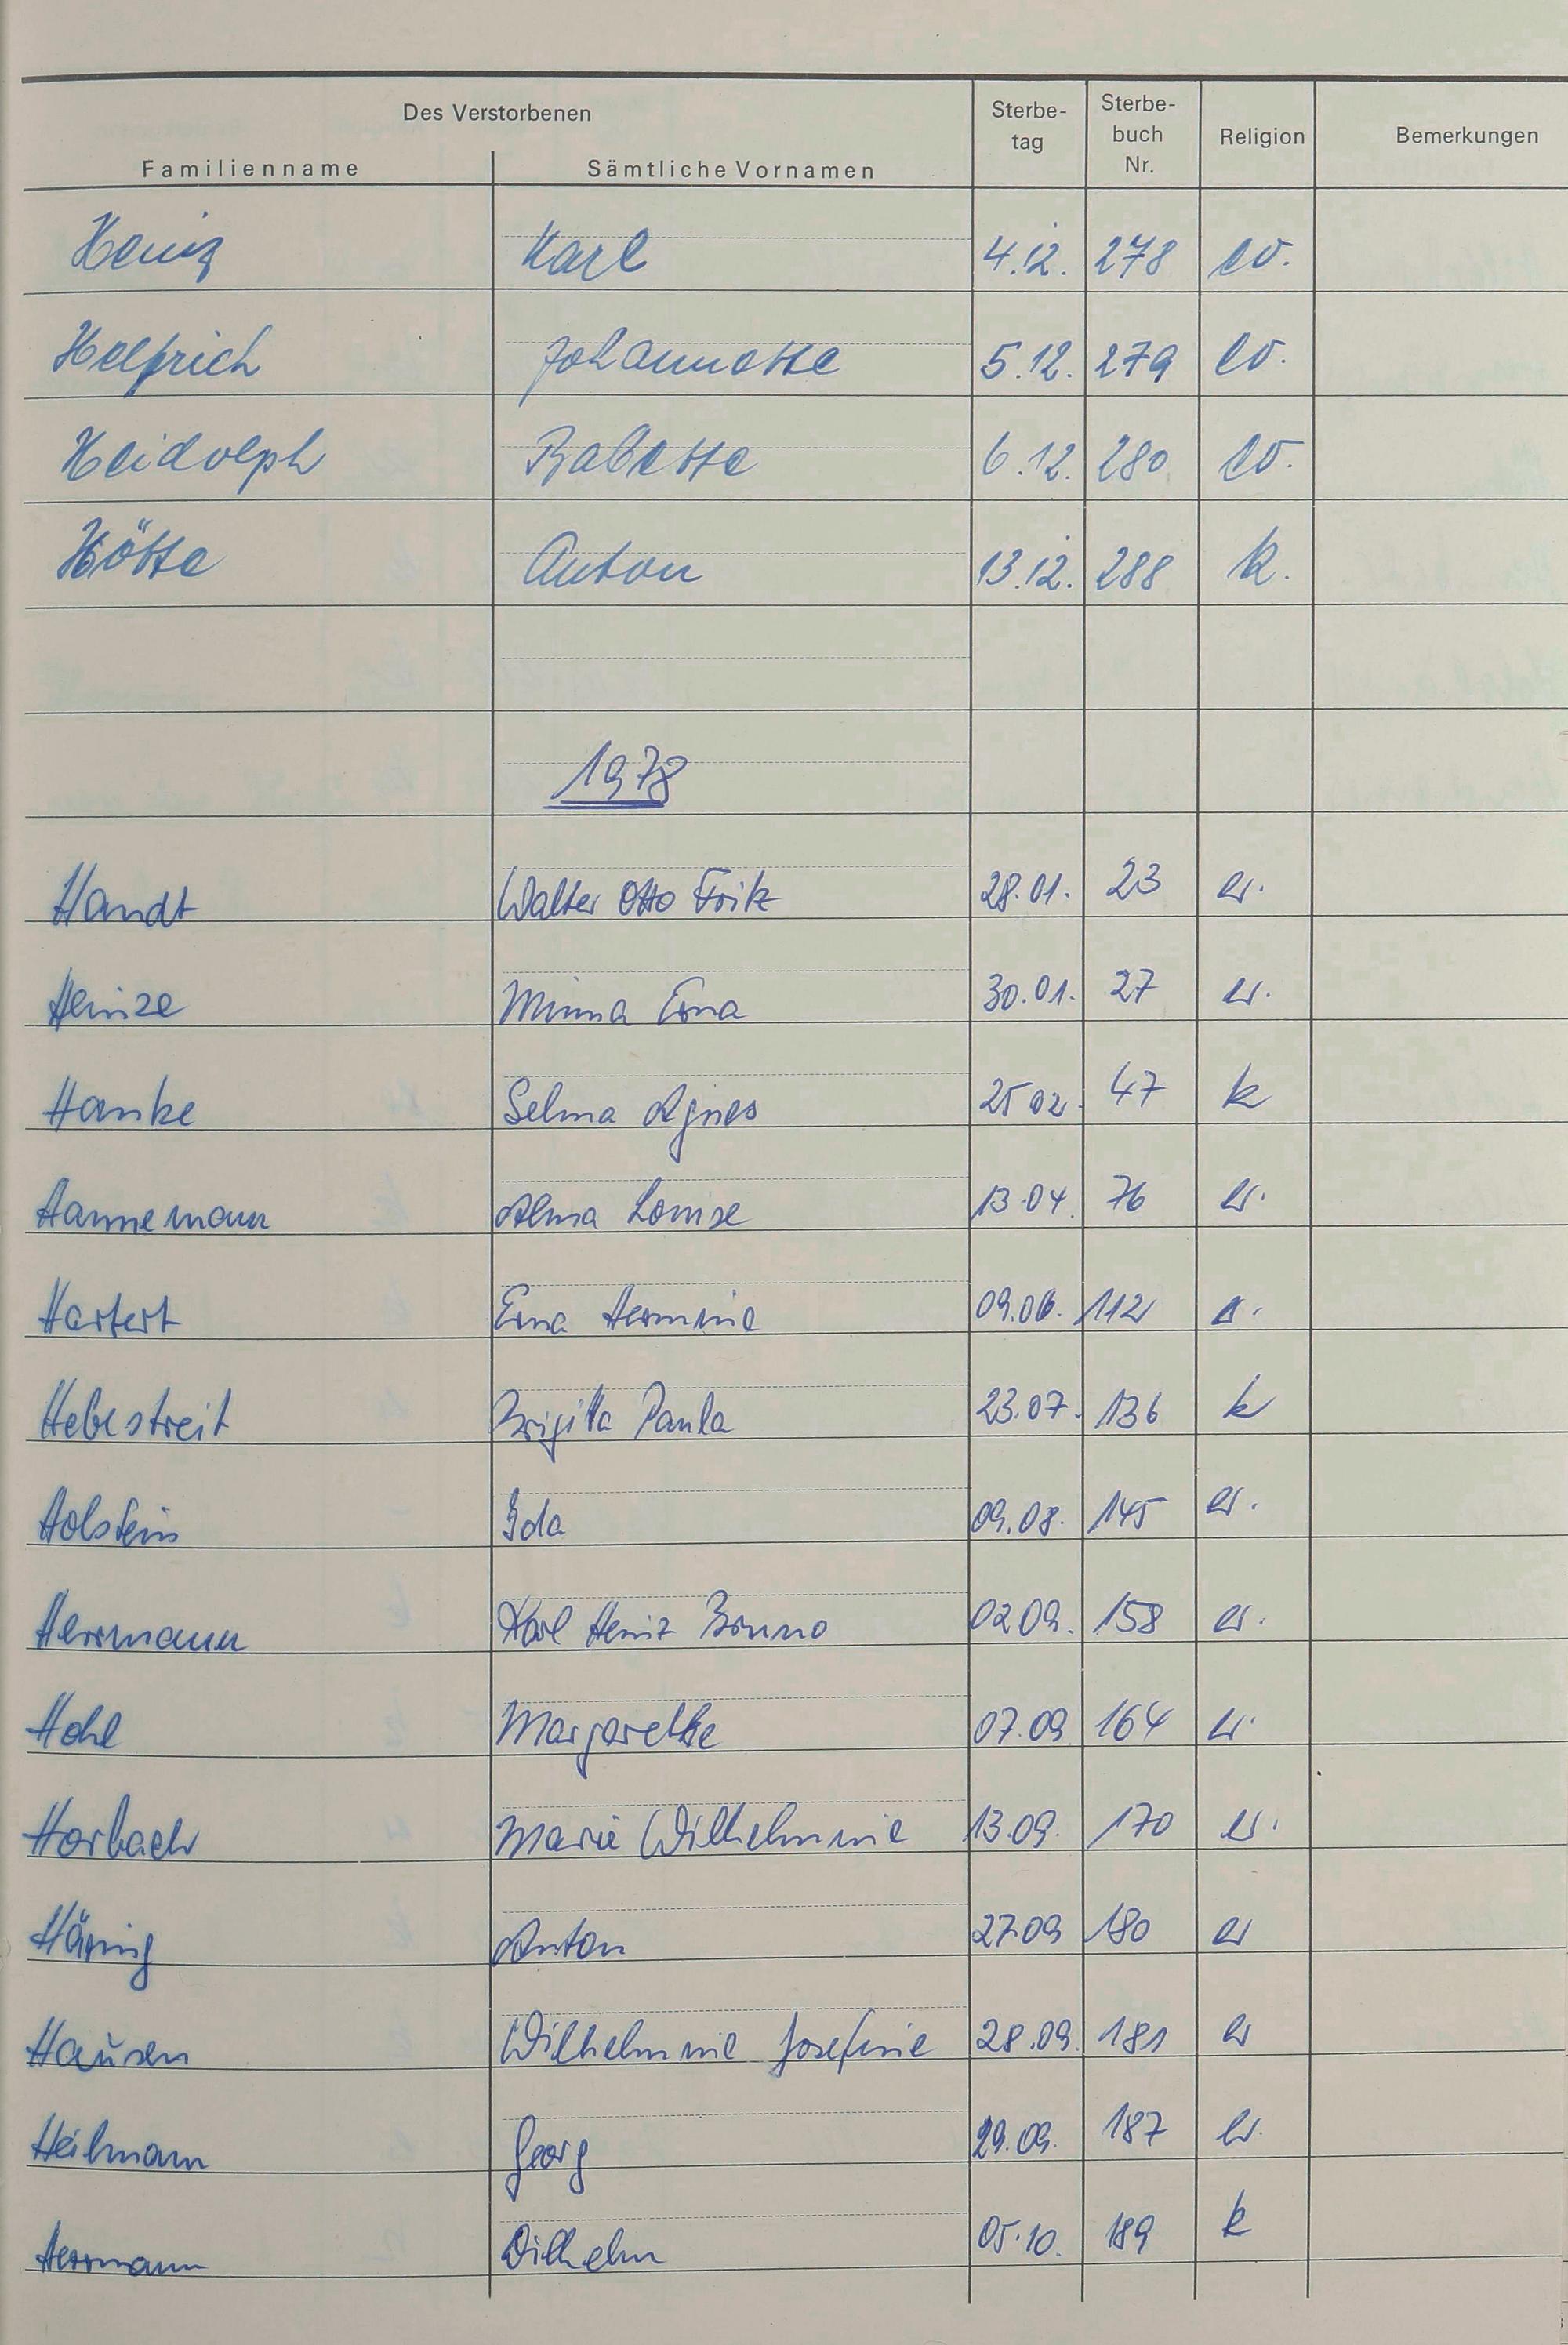 Des Verstorbenen
Familienname Sämtliche Vornamen Sterbe-tag Sterbe-buch Nr. Religion Bemerkungen
Heinz Karl 4.12. 278 ev.
Helfrich Johannette 5.12. 279 ev.
Heidolph Babette 6.12. 280 ev.
Hötte Anton 13.12. 288 k.
1978
Handt Walter Otto Fritz 28.01. 23 ev.
Heinze Minna Erna 30.01. 27 ev.
Hanke Selma Agnes 25 02. 47 k
Hannemann Alma Louise 13.04. 76 ev.
Hartert Erna Hermine 09.06. 112
Hebestreit Brigitta Paula 23.07. 136 k
Holstein Ida 09.08. 145 ev.
Herrmann Karl Heinz Bruno 02.09. 158 ev.
Hohl Margarethe 07.09 164 ev.
Horbach Marie Wilhelmine 13.09. 170 ev.
Häring Anton 27.09 180 ev
Hausen Wilhelmine Josefine 28.09. 181 ev
Heilmann Georg 29.09. 187 ev.
Herrmann Wilhelm 05.10. 189 k